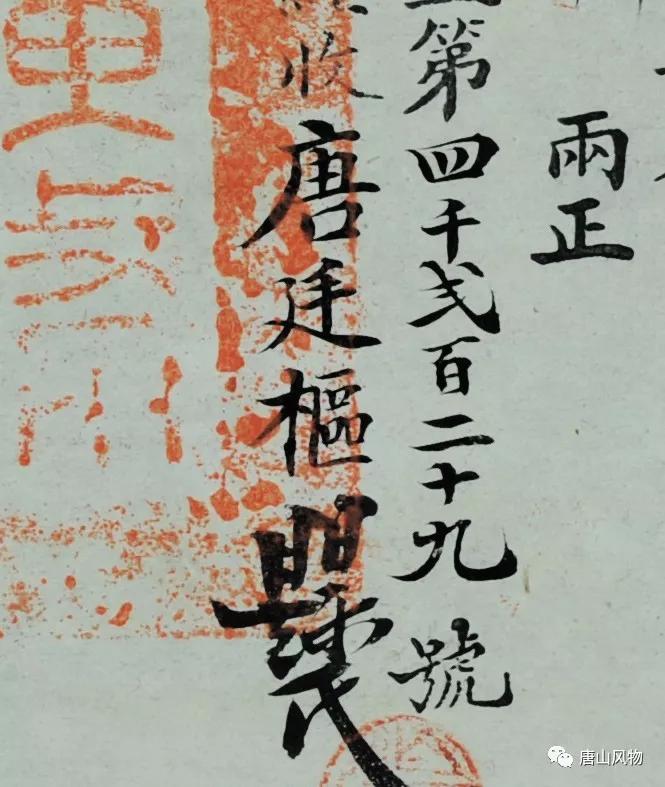 兩正
第四千弍百二十九號
收唐廷樞
唐山风物